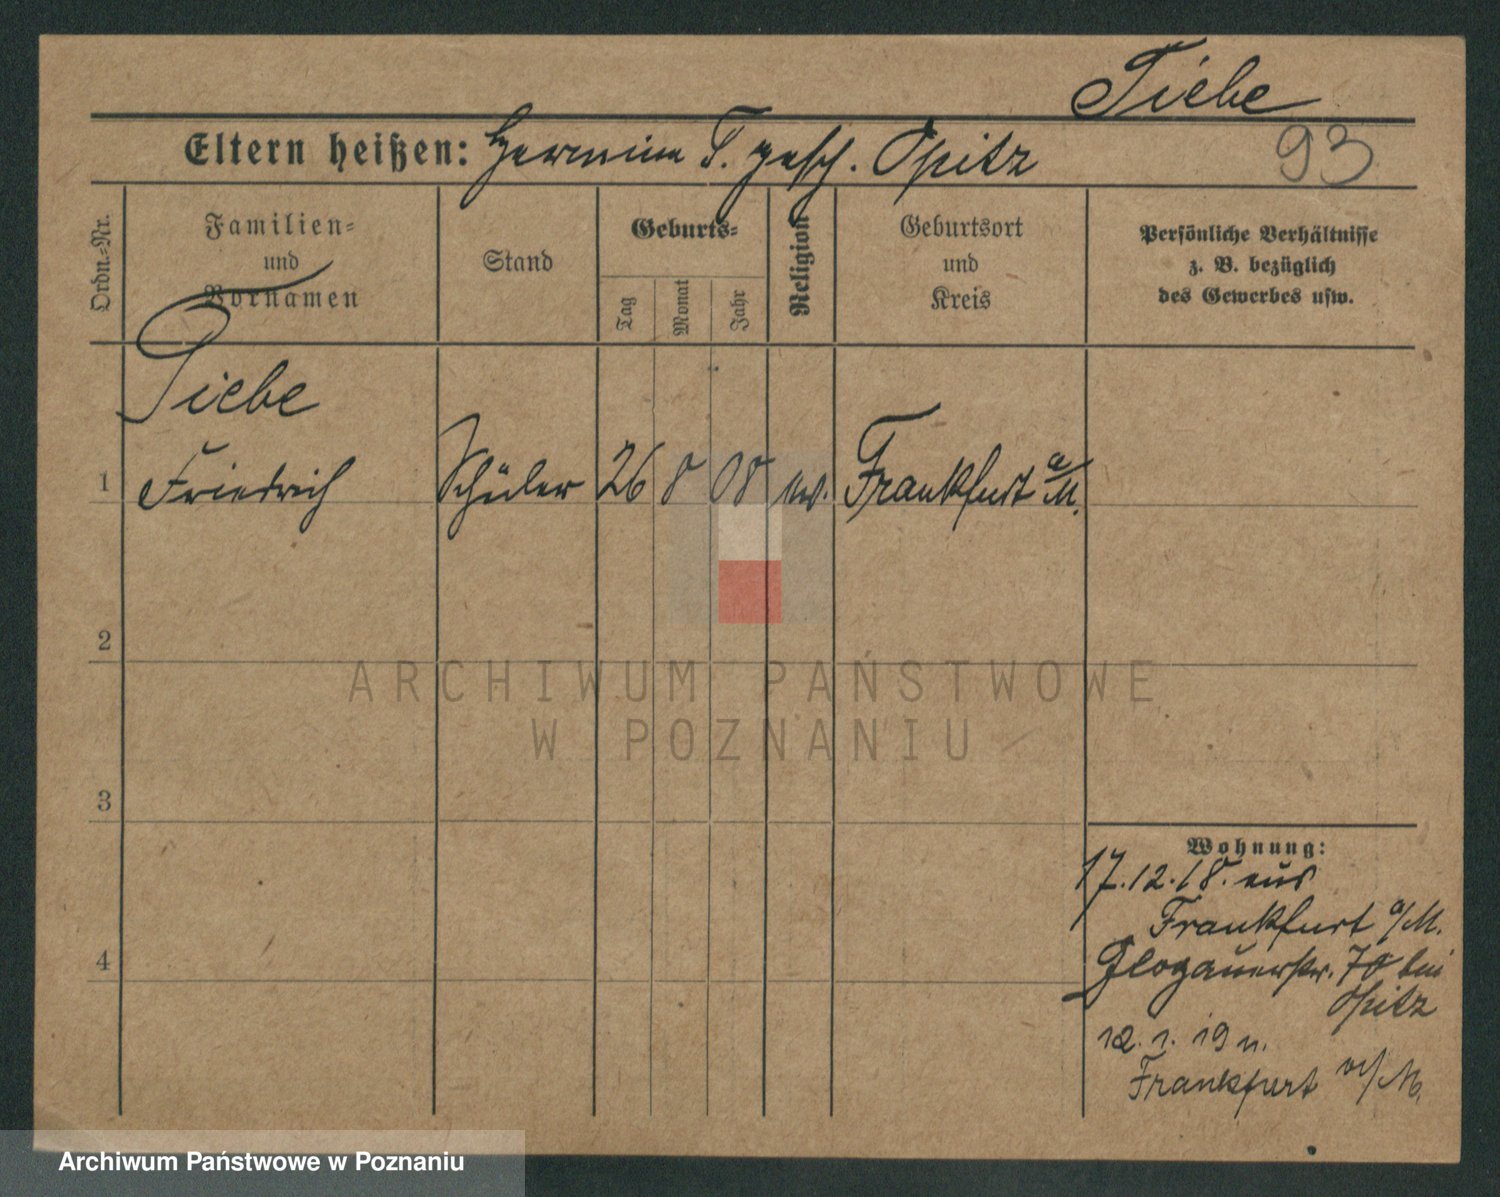 Tiebe
Eltern heißen: Hermine T. gesch. Opitz
93
Ordn.=Nr.
Familien=
und
Vornamen
Stand
Geburts=
Tag
Monat
Jahr
Religion
Geburtsort
und
Kreis
Persönliche Verhältnisse
z. B. bezüglich
des Gewerbes usw.
Tiebe
1 Friedrich Schüler 26 8 08 ev. Frankfurt a/M.
2
3
4
Wohnung:
17.12.18. aus
Frankfurt a/M.
Glogauerstr. 70 bei
Opitz
12. 1. 19 n.
Frankfurt a/M.
ARCHIWUM PAŃSTWOWE
W POZNANIU
Archiwum Państwowe w Poznaniu